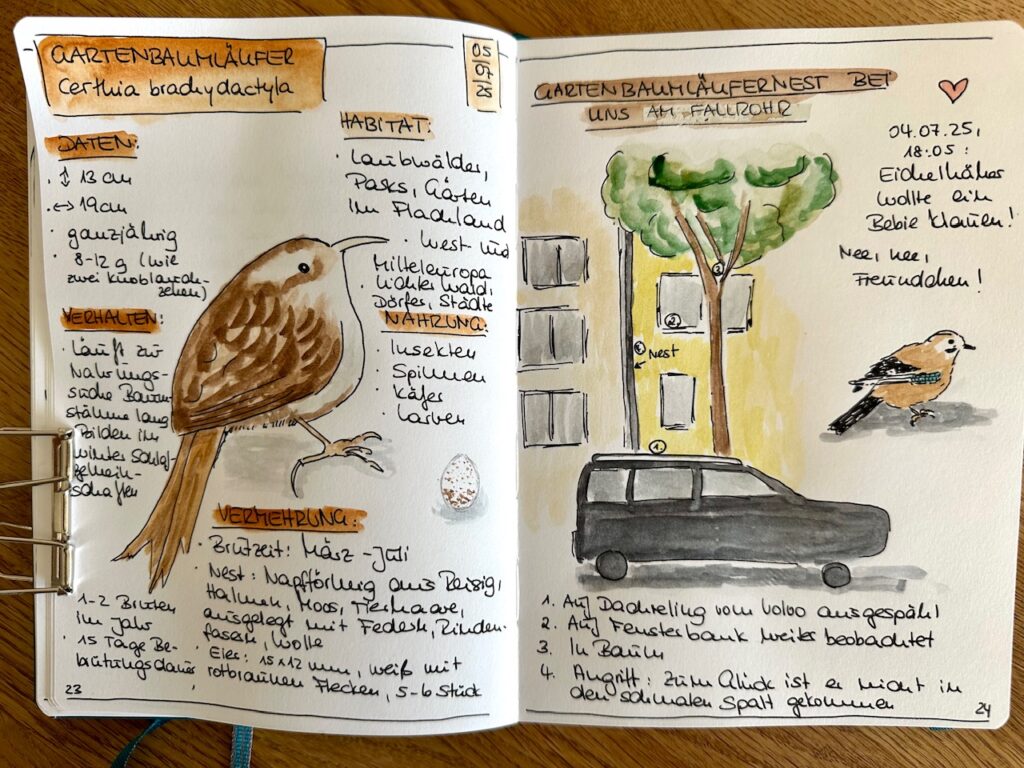 GARTENBAUMLÄUFER
Certhia brachydactyla
05/07/25
DATEN:
· ↕ 13 cm
· ↔ 19 cm
· ganzjährig
· 8-12 g (wie
zwei Knoblauch-
zehen)
VERHALTEN:
· Läuft zur
Nahrungs-
suche Baum-
stämme lang
· Bilden im
Winter Schlaf-
gemein-
schaften
HABITAT:
· Laubwälder,
Parks, Gärten
im Flachland
· West und
Mitteleuropa
· lichter Wald,
Dörfer, Städte
NAHRUNG:
· Insekten
· Spinnen
· Käfer
· Larven
VERMEHRUNG:
· Brutzeit: März - Juli
· Nest: Napfförmig aus Reisig,
Halmen, Moos, Tierhaare,
ausgelegt mit Federn, Rinden-
fasern, Wolle
· Eier: 15x12 mm, weiß mit
rotbraunen Flecken, 5-6 Stück
· 1-2 Bruten
im Jahr
· 15 Tage Be-
brütungsdauer
23
GARTENBAUMLÄUFERNEST BEI
UNS AM FALLROHR
04.07.25,
18:05:
Eichelhäher
wollte ein
Bebie klauen!
Nee, nee,
Freundchen!
3.
2.
4.
Nest
1.
1. Auf Dachreling vom Volvo ausgespäht
2. Auf Fensterbank weiter beobachtet
3. In Baum
4. Angriff: zum Glück ist er nicht in
den schmalen Spalt gekommen
24